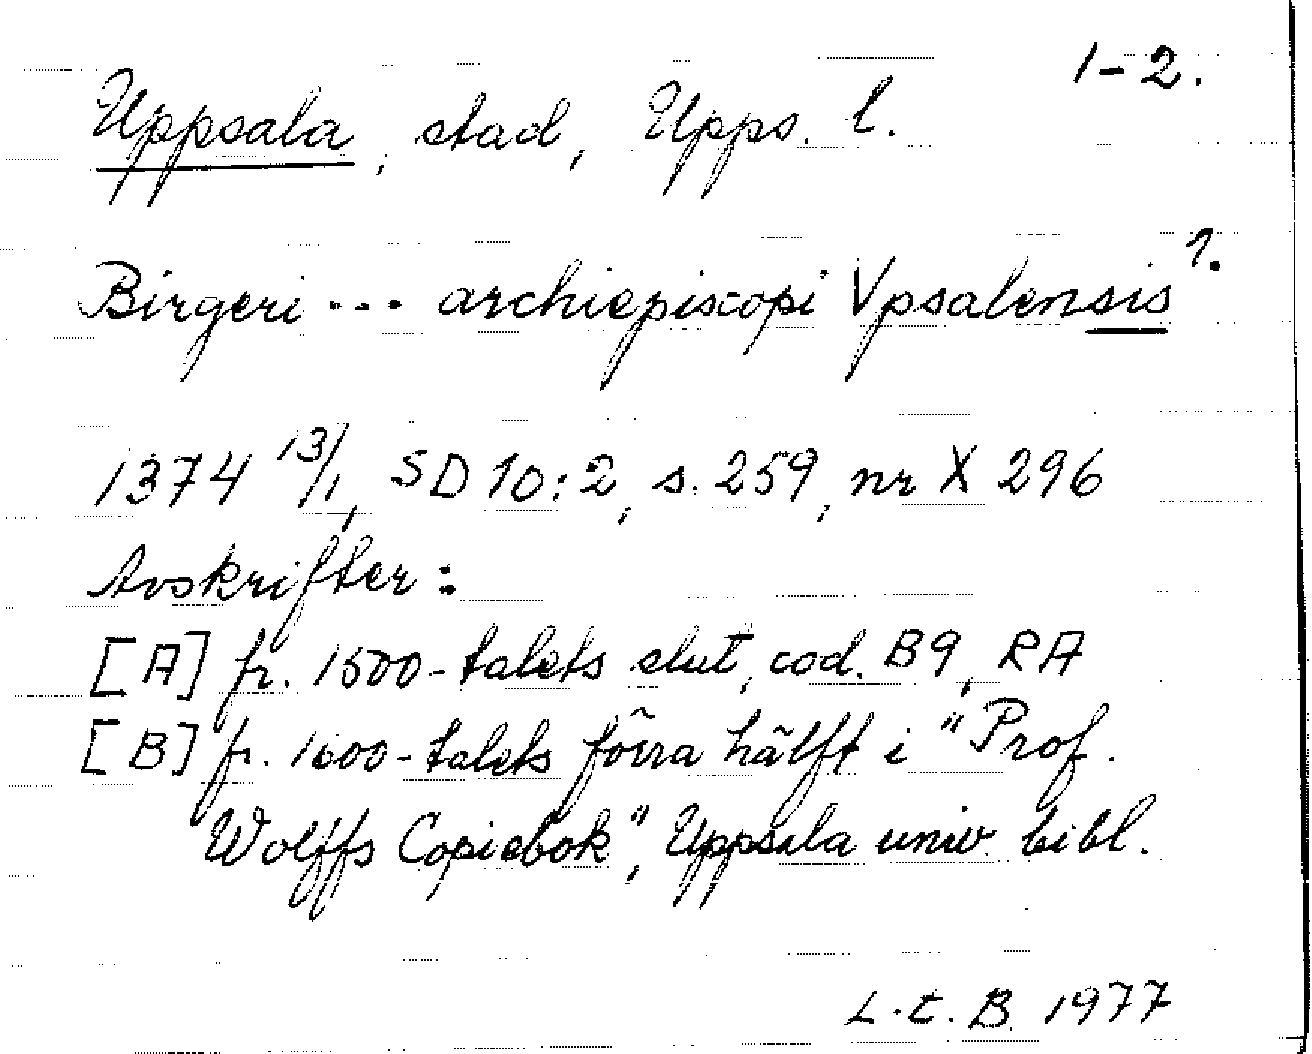 1-2.
Uppsala, stad, Upps. l.
Birgeri --- archiepiscopi Vpsalensis 1.
1374 13/1, SD 10:2, s. 259, nr X 296
Avskrifter:
[A] fr. 1500-talets slut, cod. B9, RA
[B] fr. 1600-talets förra hälft i "Prof.
Wolffs Copiebok", Uppsala univ. bibl.
L.E.B. 1977